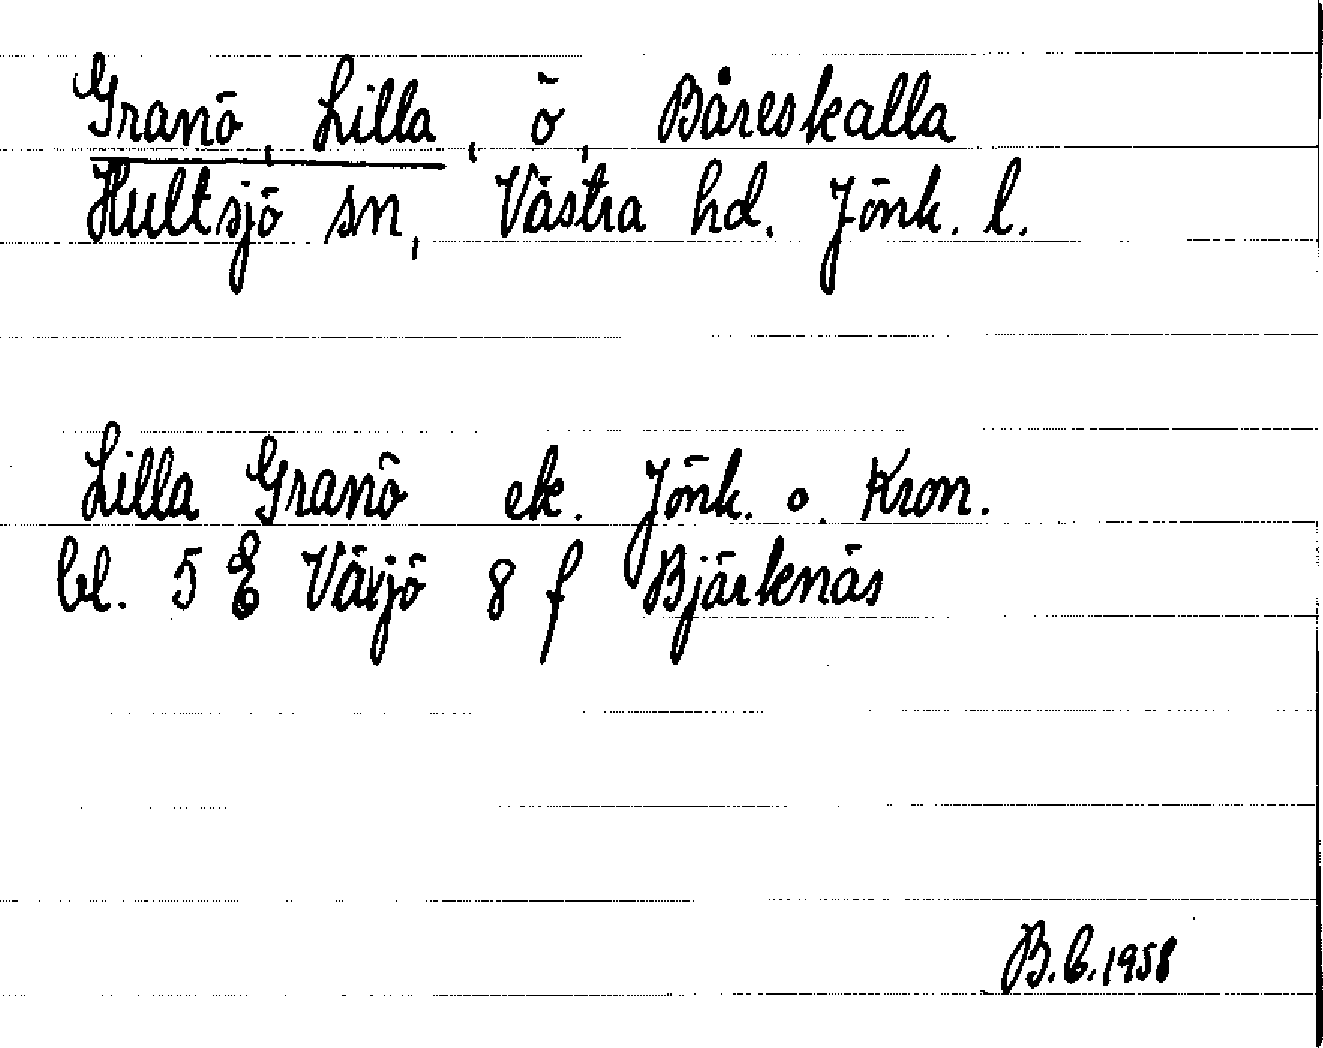 Granö, Lilla, ö, Båreskalla
Hultsjö sn, Västra hd. Jönk. l.
Lilla Granö ek. Jönk. o. Kron.
bl. 5 E Växjö 8 f Bjärkenäs
B.C. 1958